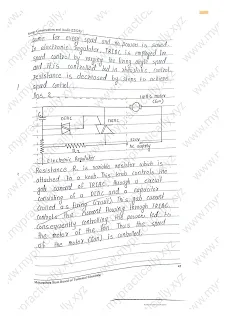 same for every speed and no power is saved.
In electronic regulator, TRIAC is employed for
speed control by varying the firing angle
and it is controlled but in rheostatic control
resistance is decreased by steps to achieve
speed control.
Ans. 2
DIAC
TRIAC
1φ AC Motor
(fan)
C1
R1
230V
AC supply
Electronic Regulator
Resistance R1 is variable resistor which is
attached to a knob. This knob controls the
gate current of TRIAC, through a circuit
consisting of a DIAC and a capacitor
called as firing circuit. This gate current
controls the current flowing through TRIAC
consequently controlling the power fed to
the motor of the fan. Thus the speed
of the motor (fan) is controlled.
Maharashtra State Board of Technical Education